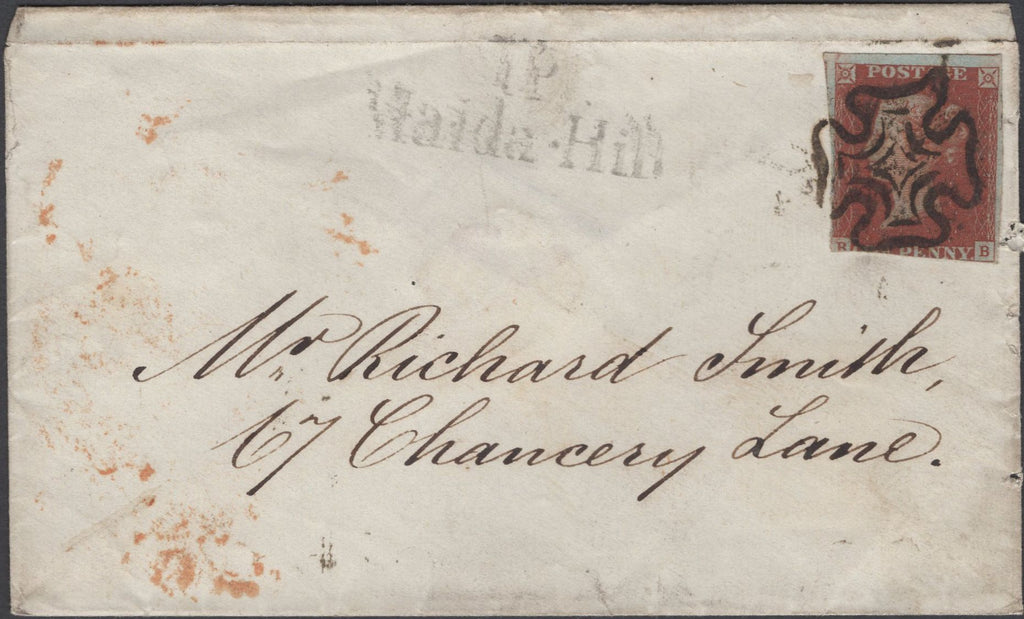 Maida-Hill
POSTAGE
R PENNY B
Mr. Richard Smith,
67 Chancery Lane.